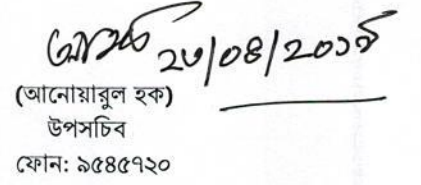 ২৩/০৪/২০১৭
(আনোয়ারুল হক)
উপসচিব
ফোন: ৯৫৪৫৭২০